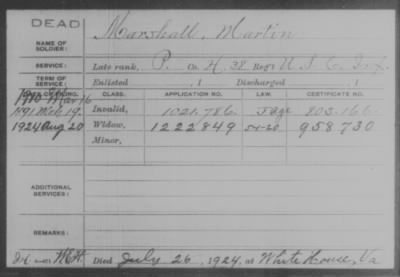 DEAD
NAME OF SOLDIER: Marshall, Martin
SERVICE: Late rank, P. Co. H, 38 Reg't U. S. C. Inf.
TERM OF SERVICE: Enlisted , 1 Discharged , 1
DATE OF FILING. CLASS. APPLICATION NO. LAW. CERTIFICATE NO.
1910 Mar 16
1891 19. Invalid, 1021.786 803.166
1924 Aug 20 Widow, 1222849 958730
Minor,
ADDITIONAL SERVICES:
REMARKS:
Died July 26, 1924, at White House, Va